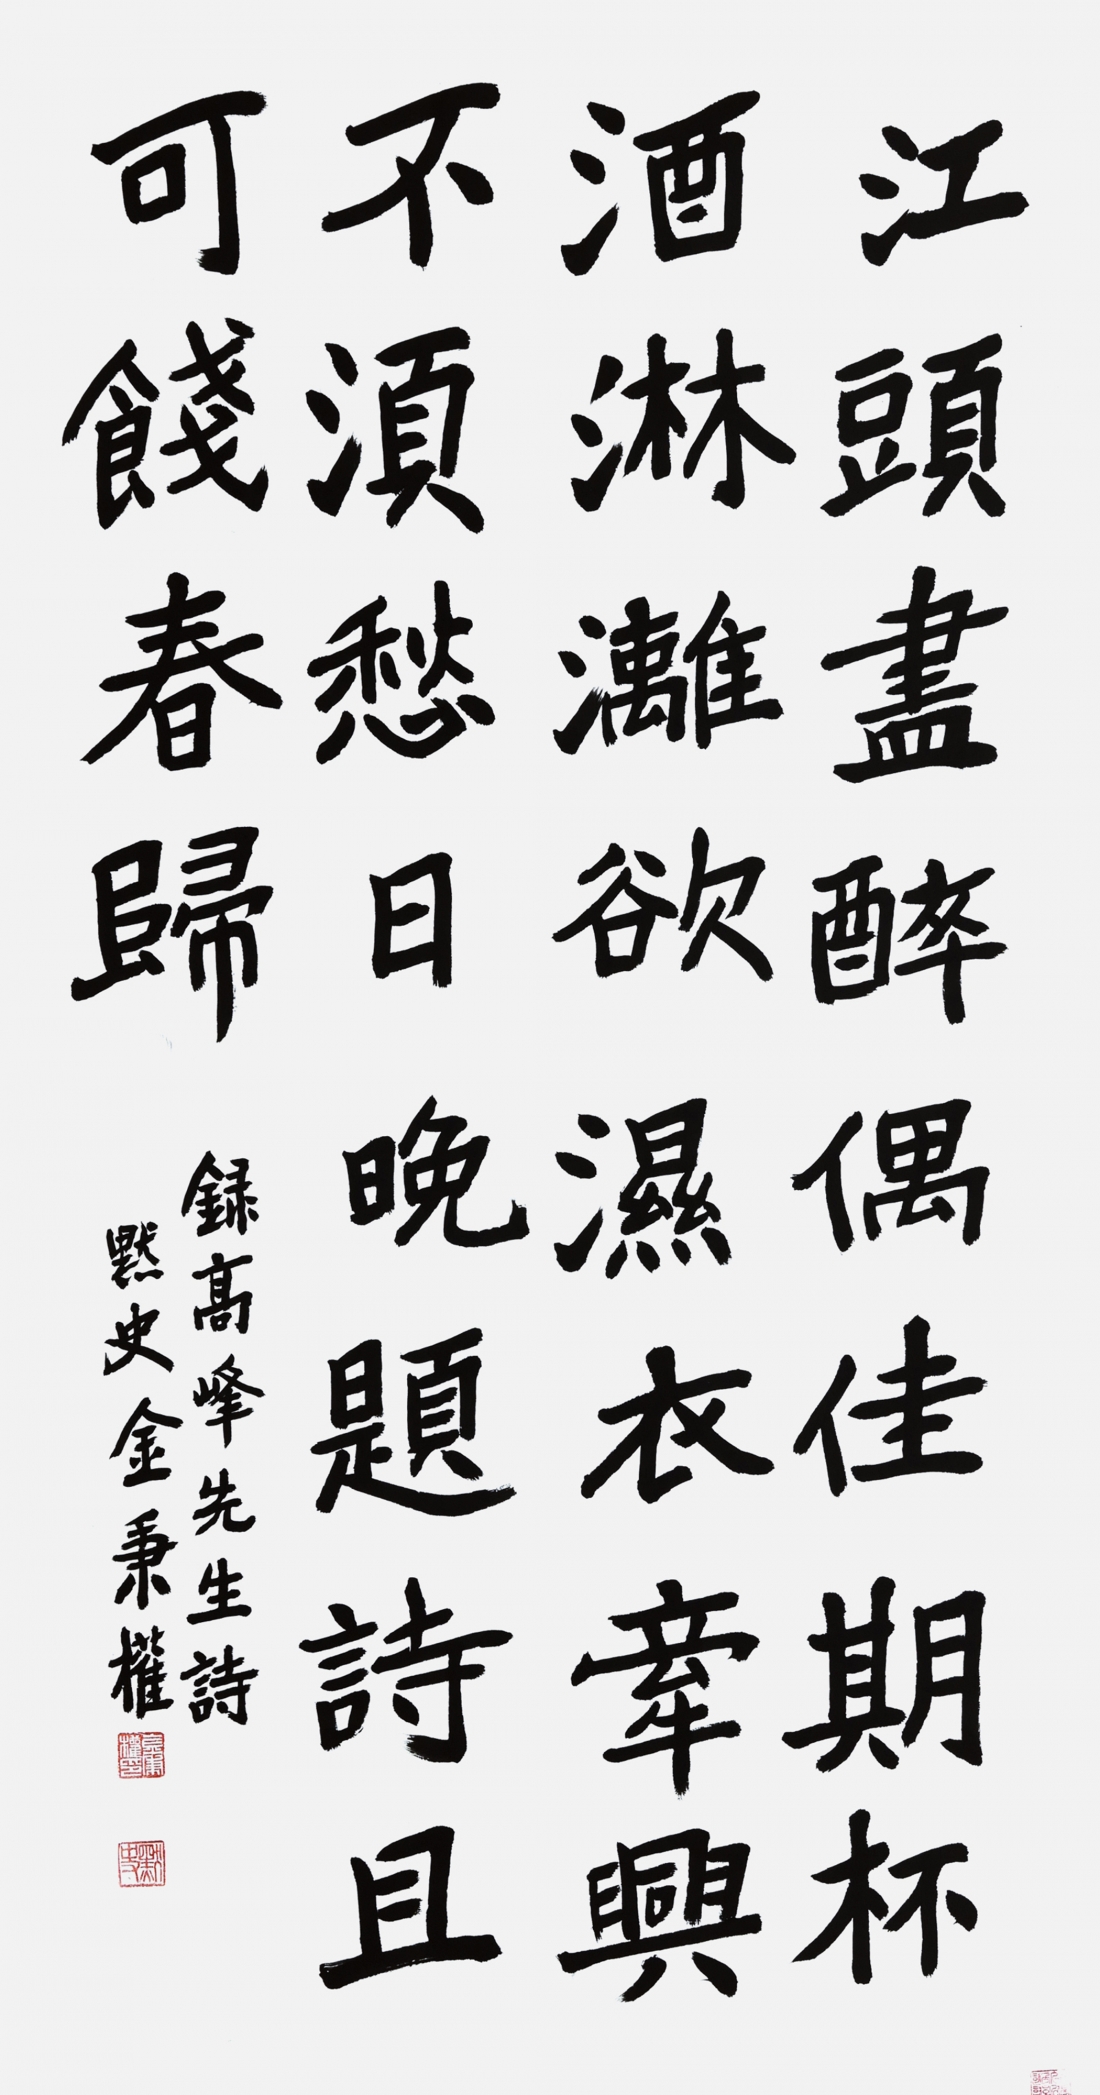 江頭盡醉偶佳期杯
酒淋灕欲濕衣牽興
不湏愁日晚題詩且
可餞春歸
録髙峰先生詩
默史金秉權